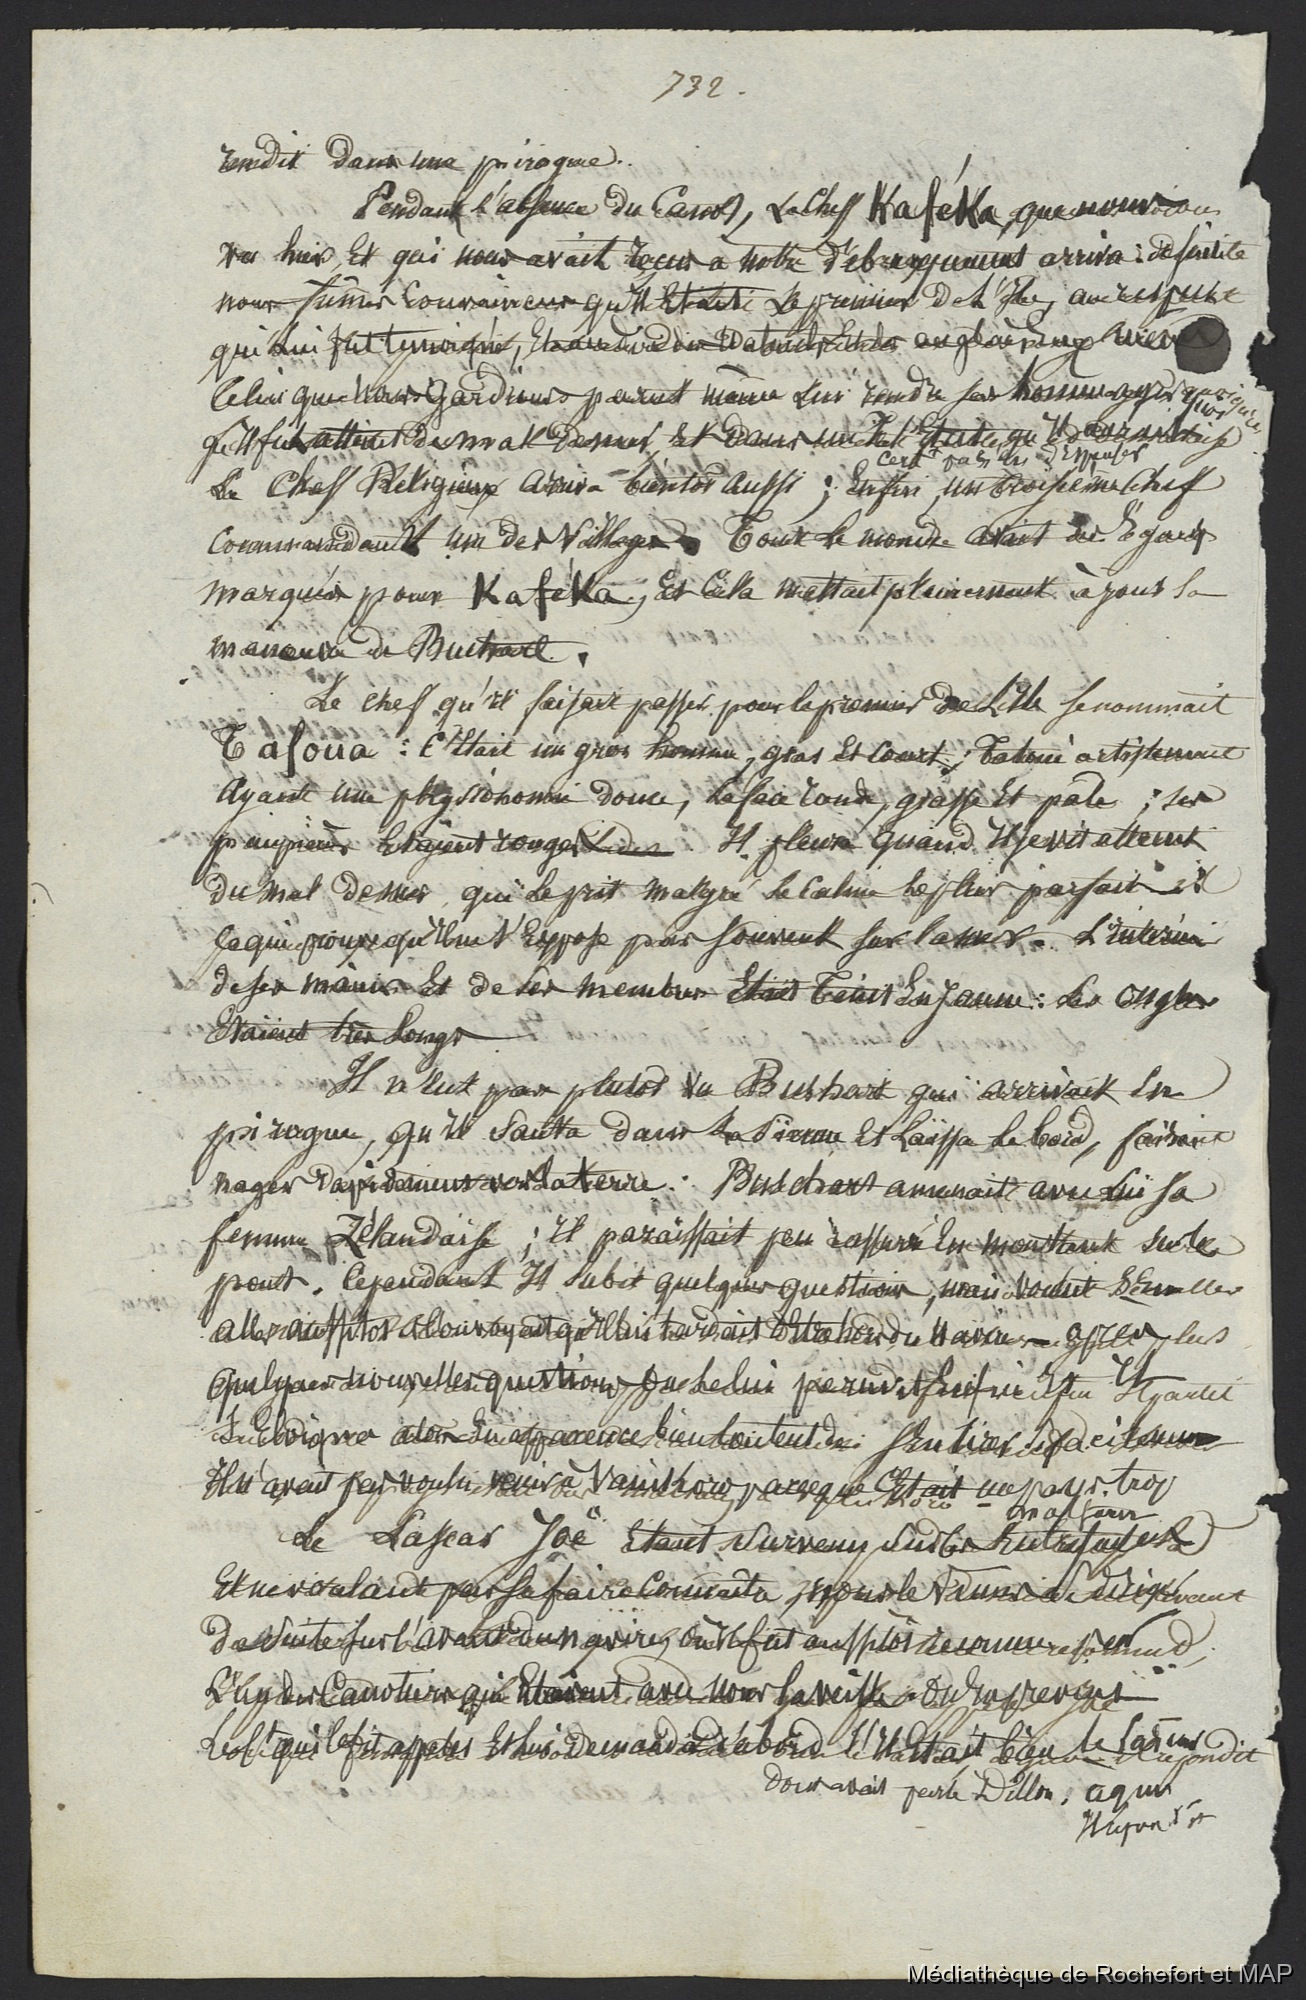 732.
rendit dans une pirogue.
Pendant l'absence du Canot, Le Chef Kaféka, que nous avions
vu hier, Et qui nous avait reçus à notre débarquement arriva : de suite
nous fûmes convaincus qu'il Etait Le premier de L'Ile, au respect
qui lui fut temoigné,
Celui que nous gardions parut même lui rendre ses hommages quoique
qu'il fut atteint du mal de mer, Et dans un Etat
Le Chef Religieux arriva bientôt aussi ; Enfin, un troisieme Chef
Commandant un des Villages. Tout Le monde avait des Egards
marqués pour Kaféka, Et Cela mettait pleinement à jour la
manœuvre de Bushart.
Le chef qu'il faisait passer pour le premier de L'Ile se nommait
Tafoua : C'Etait un gros homme, gras Et Court ; Tatoué artistement
Ayant une physionomie douce, la face ronde, grasse Et pâle ; ses
paupieres Etaient rouges. Il pleura quand Il se vit atteint
du mal de mer, qui Le prit malgré Le Calme Le plus parfait
ce qui prouve qu'il ne s'Expose pas souvent sur la mer. L'interieur
de ses mains Et de ses membres Etait Teint En Jaune : Les Ongles
Etaient très Longs
Il n'Eut pas plutôt vu Bushart qui arrivait En
pirogue, qu'il Sauta dans La Sienne Et Laissa Le bord, faisant
nager rapidement vers la terre. Bushart amenait avec lui sa
femme Zélandaise ; il paraissait peu rassuré En montant sur le
pont. Cependant Il subit quelques questions, mais voulut s'En aller
quelques nouvelles questions
Il n'avait pas voulu venir à Vanikoro parceque C'Etait un pays trop
malsain
Le Lascar Joë Etant survenu sur les Entrefaites
Et ne voulant pas se faire Connaitre,
de suite sur l'avant du navire, où il fut aussitôt reconnu
L'un des Canotiers qui Etaient avec nous la veille. On En prévint
Le Chef qui le fit appeler Et lui demanda d'abord s'il Etait bien le Lascar
dont avait parlé Dillon, a quoi
Il repondit
Médiathèque de Rochefort et MAP